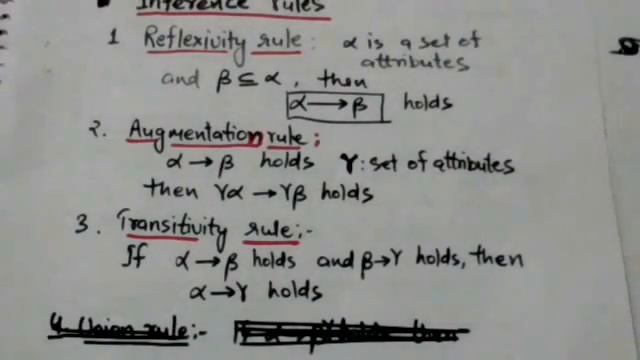 Inference rules
1 Reflexivity rule: α is a set of
attributes
and β ⊆ α, then
α → β holds
2. Augmentation rule;
α → β holds γ: set of attributes
then γα → γβ holds
3. Transitivity rule:-
If α → β holds and β→γ holds, then
α→γ holds
4. Union rule:-